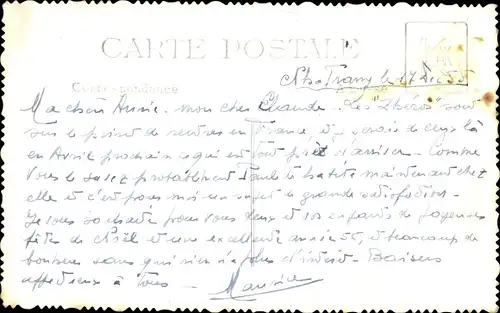 CARTE POSTALE
Nha Trang le 17 Dec 55
Correspondance
Ma chère Annie - mon cher Claude - Les "Zhéros" sont
sur le point de rentrer en France, et je serais de là
en Avril prochain ce qui est tout prêt d'arriver - Comme
vous le savez probablement Paule habite maintenant chez
elle et c'est pour moi un sujet de grande satisfaction -
Je vous souhaite pour vous deux et vos enfants de joyeuses
fêtes de Noël et une excellente année 56, et beaucoup de
bonheur sans que rien n'a plus d'intérêt - Baisers
affectueux à tous - Maurice